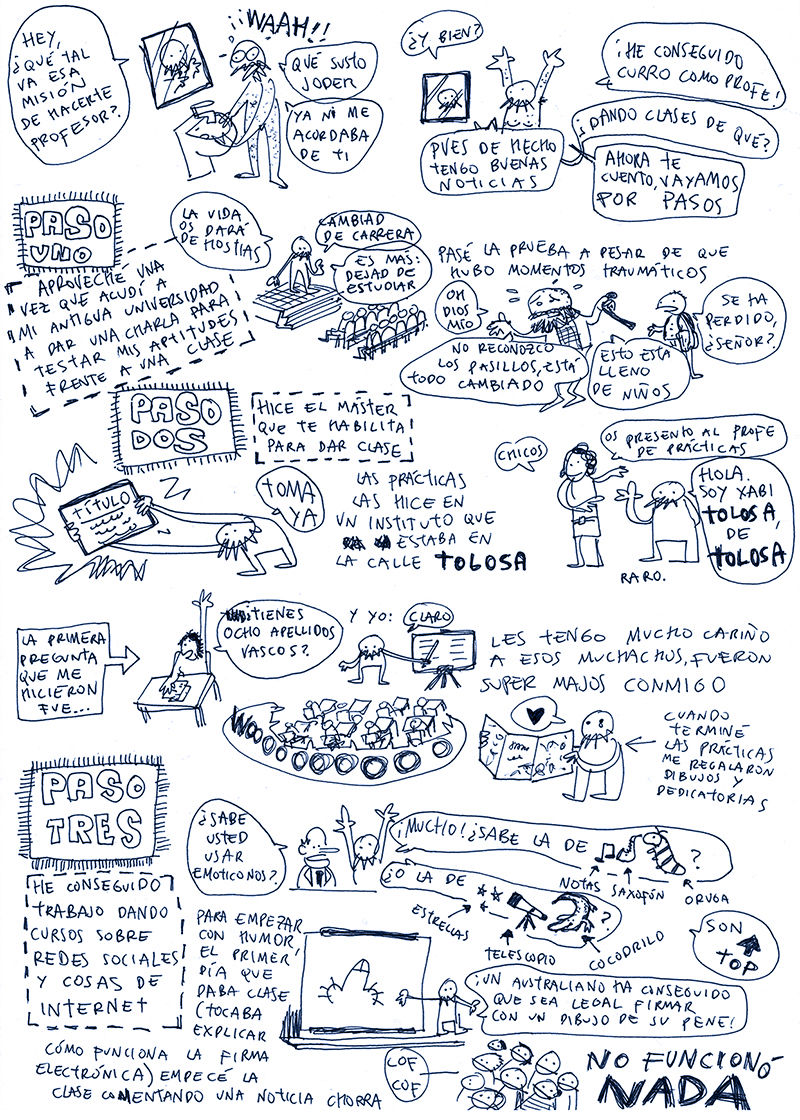 HEY,
¿QUÉ TAL
VA ESA
MISIÓN
DE HACERTE
PROFESOR?
¡¡WAAH!!
QUÉ SUSTO
JODER
YA NI ME
ACORDABA
DE TI
¿Y BIEN?
PUES DE HECHO
TENGO BUENAS
NOTICIAS
¡HE CONSEGUIDO
CURRO COMO PROFE!
¿DANDO CLASES DE QUÉ?
AHORA TE
CUENTO, VAYAMOS
POR PASOS
PASO
UNO
APROVECHÉ UNA
VEZ QUE ACUDÍ A
MI ANTIGUA UNIVERSIDAD
A DAR UNA CHARLA PARA
TESTAR MIS APTITUDES
FRENTE A UNA CLASE
LA VIDA
OS DARÁ
DE HOSTIAS
CAMBIAD
DE CARRERA
ES MÁS:
DEJAD DE
ESTUDIAR
PASÉ LA PRUEBA A PESAR DE QUE
HUBO MOMENTOS TRAUMÁTICOS
OH
DIOS
MÍO
NO RECONOZCO
LOS PASILLOS, ESTÁ
TODO CAMBIADO
ESTO ESTÁ
LLENO
DE NIÑOS
SE HA
PERDIDO,
¿SEÑOR?
PASO
DOS
HICE EL MÁSTER
QUE TE HABILITA
PARA DAR CLASE
TÍTULO
TOMA
YA
LAS PRÁCTICAS
LAS HICE EN
UN INSTITUTO QUE
ESTABA EN
LA CALLE TOLOSA
CHICOS
OS PRESENTO AL PROFE
DE PRÁCTICAS
HOLA.
SOY XABI
TOLOSA,
DE
TOLOSA
RARO.
LA PRIMERA
PREGUNTA
QUE ME
HICIERON
FUE...
¿TIENES
OCHO APELLIDOS
VASCOS?
Y YO:
CLARO
WOOOOOOOOOO
LES TENGO MUCHO CARIÑO
A ESOS MUCHACHOS, FUERON
SUPER MAJOS CONMIGO
CUANDO
TERMINÉ
LAS PRÁCTICAS
ME REGALARON
DIBUJOS Y
DEDICATORIAS
PASO
TRES
HE CONSEGUIDO
TRABAJO DANDO
CURSOS SOBRE
REDES SOCIALES
Y COSAS DE
INTERNET
¿SABE
USTED
USAR
EMOTICONOS?
¡MUCHO! ¿SABE LA DE
?
NOTAS
SAXOFÓN
ORUGA
¿O LA DE
?
ESTRELLAS
TELESCOPIO
COCODRILO
SON
TOP
PARA EMPEZAR
CON HUMOR
EL PRIMER
DÍA QUE
DABA CLASE
(TOCABA
EXPLICAR
CÓMO FUNCIONA LA FIRMA
ELECTRÓNICA) EMPECÉ LA
CLASE COMENTANDO UNA NOTICIA CHORRA
¡UN AUSTRALIANO HA CONSEGUIDO
QUE SEA LEGAL FIRMAR
CON UN DIBUJO DE SU PENE!
COF
COF
NO FUNCIONÓ
NADA